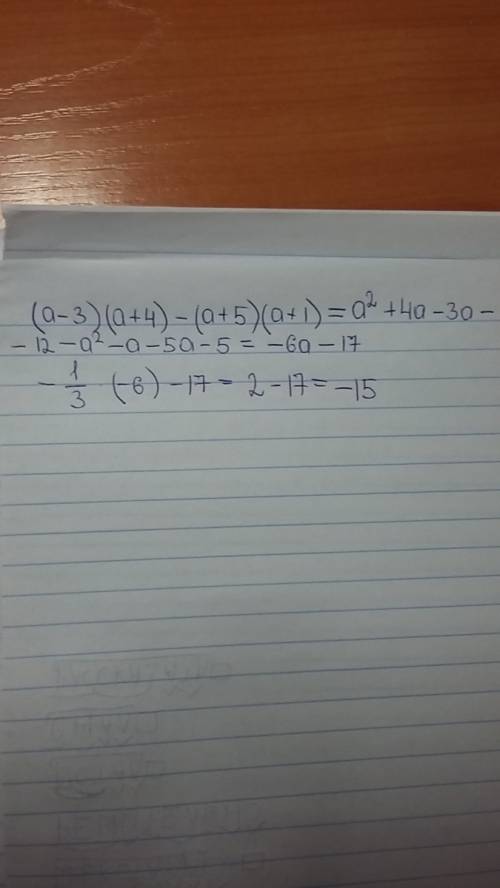 (a-3)(a+4)-(a+5)(a+1)=a²+4a-3a-
-12-a²-a-5a-5=-6a-17
-1/3 (-6)-17=2-17=-15